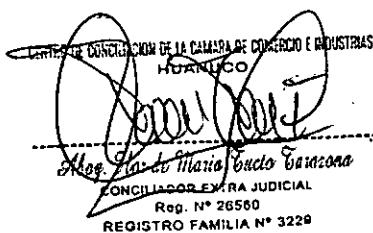 CENTRO DE CONCILIACION DE LA CAMARA DE COMERCIO E INDUSTRIAS
HUANUCO
Abog. Flor de Maria Tucto Tarazona
CONCILIADOR EXTRA JUDICIAL
Reg. N° 26560
REGISTRO FAMILIA N° 3229